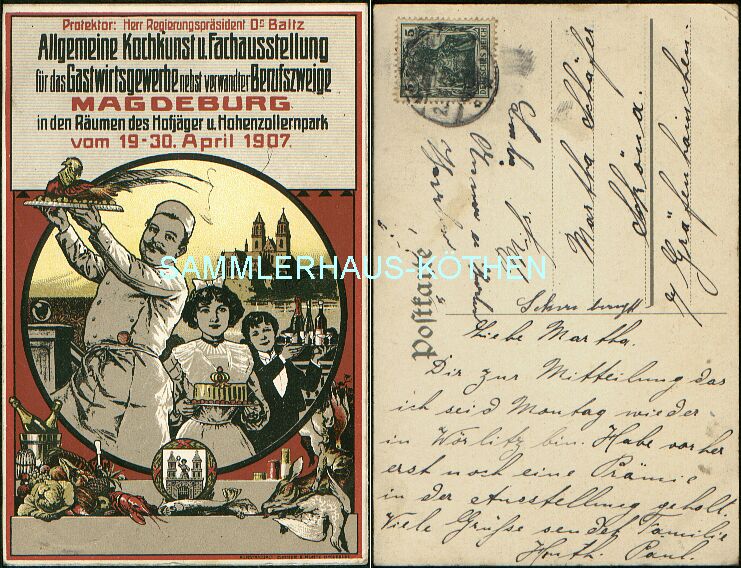 Protektor: Herr Regierungspräsident Dr Baltz
Allgemeine Kochkunst u. Fachausstellung
für das Gastwirtsgewerbe nebst verwandter Berufszweige
MAGDEBURG
in den Räumen des Hofjäger u. Hohenzollernpark
vom 19-30. April 1907.
SAMMLERHAUS-KÖTHEN
5
DEUTSCHES REICH
Postkarte
Martha Schäfer
Schöna.
Gräfenhainichen.
Liebe Martha.
Dir zur Mitteilung das
ich seid Montag wieder
in Wörlitz bin. Habe vorher
erst noch eine Prämie
in der Ausstellung geholt.
Viele Grüsse sendet Familie
Paul.